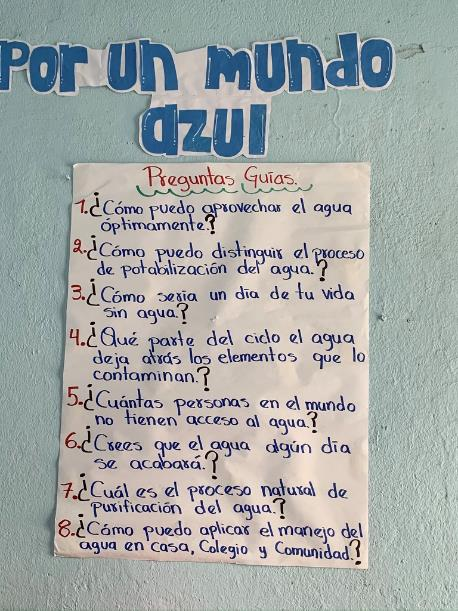 Por un mundo
azul
Preguntas Guías.
1. ¿Cómo puedo aprovechar el agua
óptimamente.?
2. ¿Cómo puedo distinguir el proceso
de potabilización del agua.?
3. ¿Cómo seria un dia de tu vida
sin agua.?
4. ¿Qué parte del ciclo el agua
deja atrás los elementos que lo
contaminan.?
5. ¿Cuántas personas en el mundo
no tienen acceso al agua.?
6. ¿Crees que el agua algún día
se acabará.?
7. ¿Cuál es el proceso natural de
purificación del agua.?
8. ¿Cómo puedo aplicar el manejo del
agua en casa, Colegio y Comunidad.?